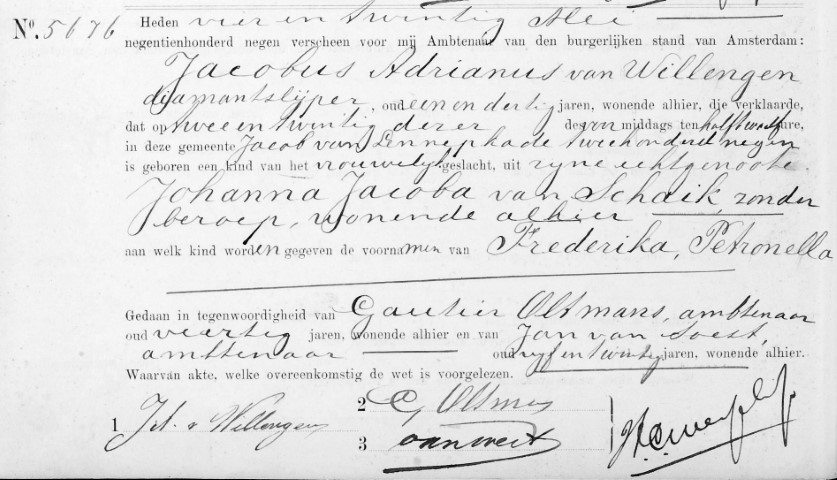 No. 5676 Heden vier en twintig Mei
negentienhonderd negen verscheen voor mij Ambtenaar van den burgerlijken stand van Amsterdam:
Jacobus Adrianus van Willengen
diamantslijper, oud een en dertig jaren, wonende alhier, die verklaarde,
dat op twee en twintig dezer des voor middags ten half twaalf ure,
in deze gemeente Jacob van Lennepkade tweehonderd negen
is geboren een kind van het vrouwelijk geslacht, uit zijne echtgenoote
Johanna Jacoba van Schaik, zonder
beroep, wonende alhier
aan welk kind worden gegeven de voornamen van Frederika, Petronella
Gedaan in tegenwoordigheid van Gautier Oltmans, ambtenaar
oud veertig jaren, wonende alhier en van Jan van Soest,
ambtenaar oud vijf en twintig jaren, wonende alhier.
Waarvan akte, welke overeenkomstig de wet is voorgelezen.
1 v Willengen
2 G Oltmans
3